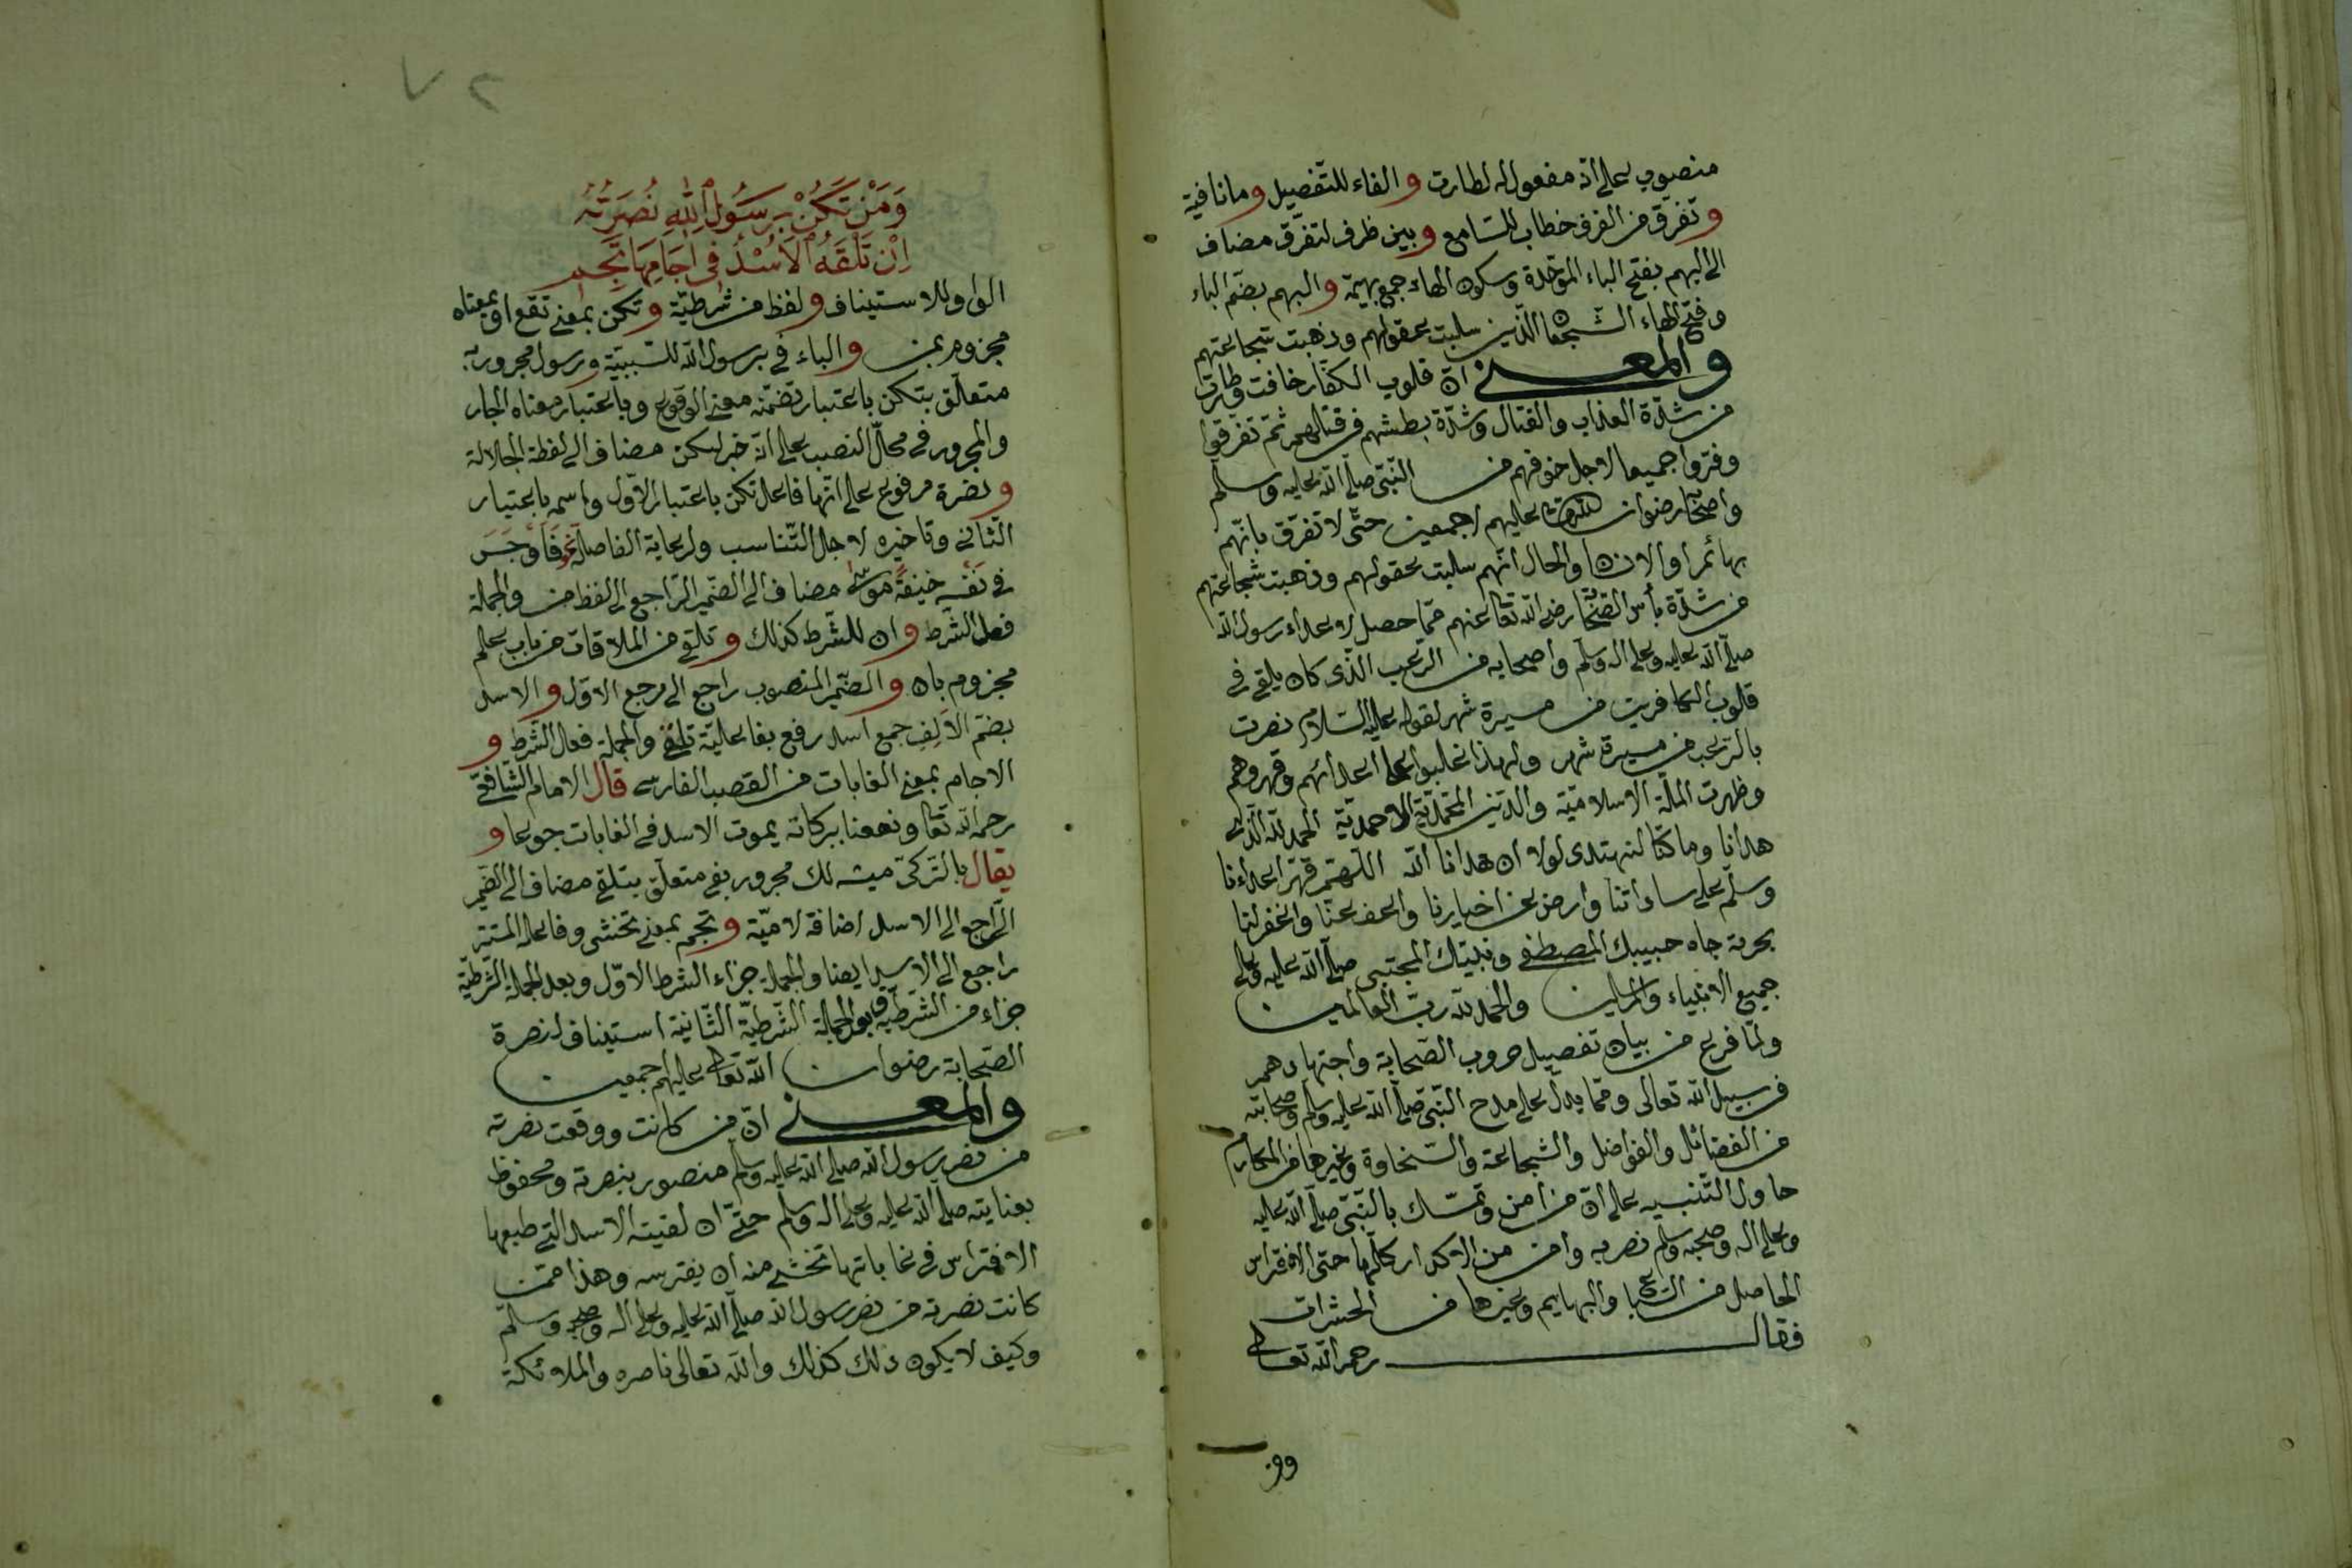 منصوب على انه مفعول له لطارت والفاء للتفصيل وما نافية
وتفرق من الفرق خطاب للسامع وبين ظرف لتفرق مضاف
الى البهم بفتح الباء الموحدة وسكون الهاء جمع بهيمة والبهم بضم الباء
وفتح الهاء الشجعان الذين سلبت عقولهم وذهبت شجاعتهم
والمعنى ان قلوب الكفار خافت وطارت
من شدة العذاب والقتال وشدة بطشهم فرقتلهم ثم تفرقوا
وفروا جميعا لاجل خوفهم من النبى صلى الله عليه وسلم
واصحابه رضوان الله عليهم اجمعين حتى لا تفرق بانهم
بهائم او الانسان والحال انهم سلبت عقولهم وذهبت شجاعتهم
من شدة بأس الصحابة رضى الله تعالى عنهم مما حصل لاعداء رسول الله
صلى الله عليه وعلى اله وسلم واصحابه من الرعب الذى كان يلقى فى
قلوب الكافرين من مسيرة شهر لقوله عليه السلام نصرت
بالرعب من مسيرة شهر ولهذا غلبوا على اعدائهم وقهروهم
وظهرت الملة الاسلامية والدين المحمدية الاحمدية الحمد لله الذى
هدانا وما كنا لنهتدى لولا ان هدانا الله اللهم قهر اعداءنا
وسلم على ساداتنا وارض عن اخيارنا واعف عنا واغفر لنا
بحرمة جاه حبيبك المصطفى ونبيك المجتبى صلى الله عليه وعلى
جميع الانبياء والمرسلين والحمد لله رب العالمين
ولما فرغ من بيان تفصيل حروب الصحابة واجتهادهم
فى سبيل الله تعالى ومما يدل على مدح النبى صلى الله عليه وسلم وصحابته
من الفضائل والفواضل والشجاعة والسخاوة وغيرها من المكارم
حاول التنبيه على ان من امن وتمسك بالنبى صلى الله عليه
وعلى اله وصحبه وسلم نصر به وامن من الاكدار كلها حتى الافتراس
الحاصل من السباع والبهايم وغيرها من الحشرات
فقال رحمه الله تعالى
ومن
٧٢
وَمَنْ تَكُنْ بِرَسُولِ اللهِ نُصْرَتُهُ
اِنْ تَلْقَهُ الْاُسْدُ فِى اٰجَامِهَا تَجِمِ
الواو للاستيناف ولفظ من شرطية وتكن بمعنى تقع او بمعناه
مجزوم بمن والباء فى برسول الله للسببية ورسول مجرور به
متعلق بتكن باعتبار تضمنه معنى الوقوع وباعتبار معناه الجار
والمجرور فى محل النصب على انه خبر لتكن مضاف الى لفظة الجلالة
ونصرة مرفوع على انها فاعل تكن باعتبار الاول واسمه باعتبار
الثانى وتاخيره لاجل التناسب ولرعاية الفاصلة نحو فَاَوْجَسَ
فى نَفْسِه خِيفَةً مُوسٰى مضاف الى الضمير الراجع الى لفظ من والجملة
فعل الشرط وان للشرط كذلك وتلقى من الملاقات من باب علم
مجزوم بان والضمير المنصوب راجع الى مرجع الاول والاسد
بضم الالف جمع اسد رفع بفاعلية تلقى والجملة فعل الشرط و
الاجام بمعنى الغابات من القصب الفارسى قال الامام الشافعى
رحمه الله تعالى ونفعنا ببركاته يموت الاسد فى الغابات جوعا و
يقال بالتركى ميشه لك مجرور بفى متعلق بتلقى مضاف الى الضمير
الراجع الى الاسد اضافة لامية وتجم بمعنى تخشى وفاعله المستتر
راجع الى الاسد ايضا والجملة جزاء الشرط الاول وبعد الجملة الشرطية
جزاء من الشرطية والجملة الشرطية الثانية استيناف لنصرة
الصحابة رضوان الله تعالى عليهم اجمعين
والمعنى ان من كانت ووقعت نصرته
من نصر رسول الله صلى الله عليه وسلم منصور بنصرته ومحفوظ
بعنايته صلى الله عليه وعلى اله وسلم حتى ان لقيته الاسد التى طبعها
الافتراس فى غاباتها تخشى منه ان يفترسه وهذا ممن
كانت نصرته من نصر رسول الله صلى الله عليه وعلى اله وصحبه وسلم
وكيف لا يكون ذلك كذلك والله تعالى ناصره والملائكة